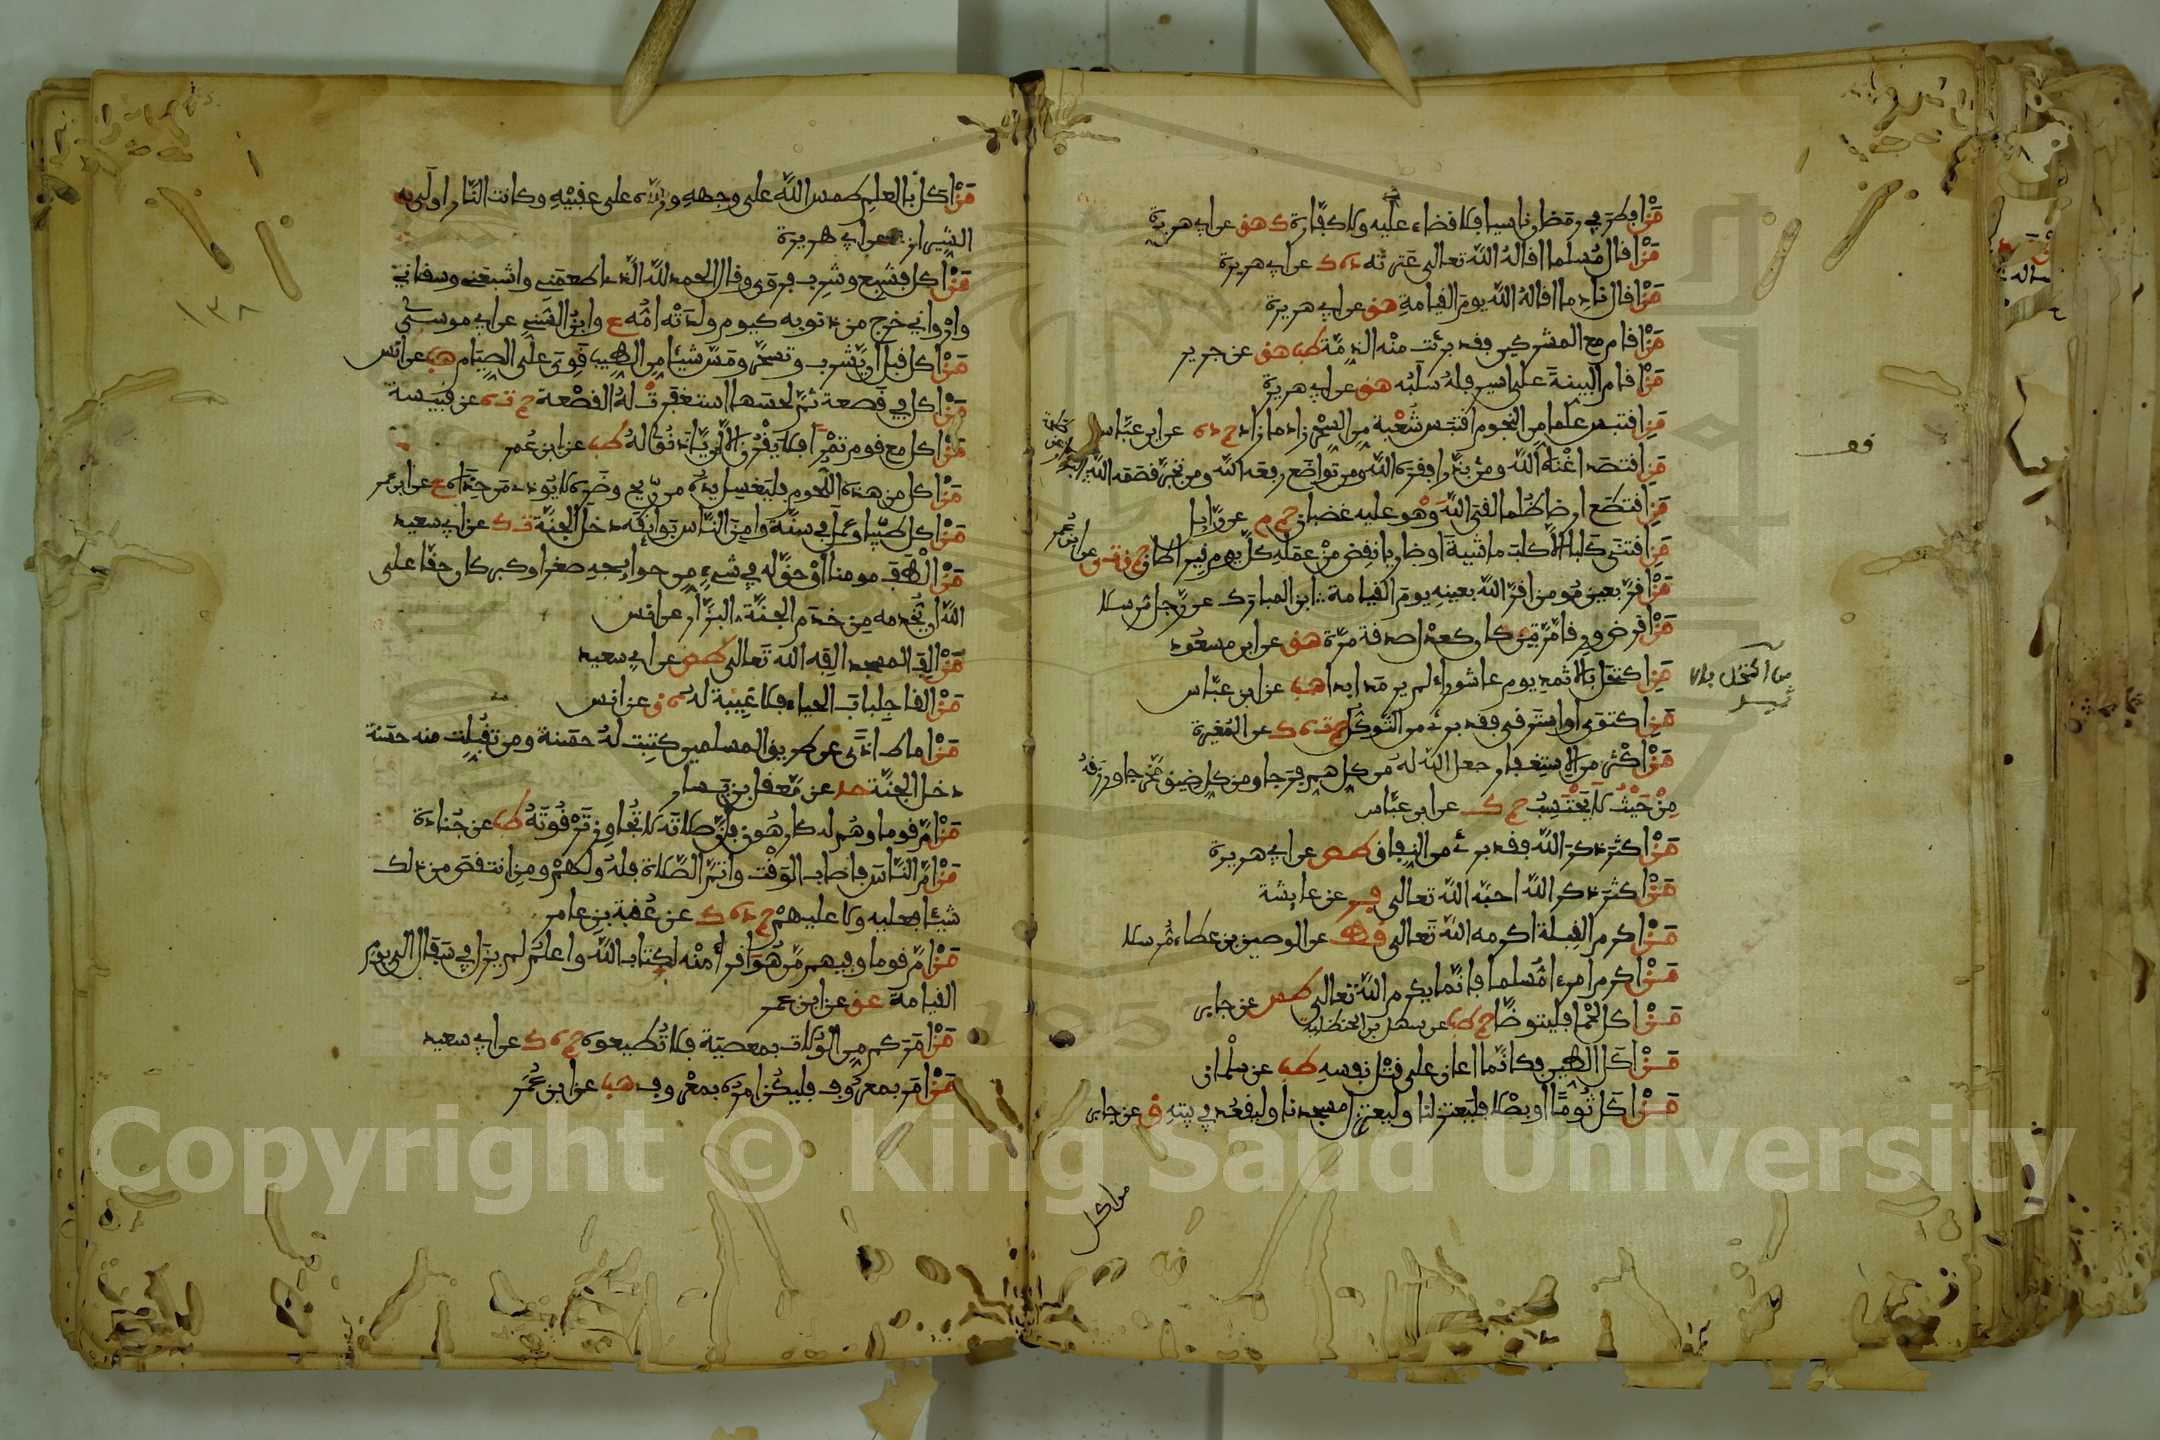 مَنْ افطر في رمضان ناسيا فلا قضاء عليه ولا كفارة ك هق عن ابي هريرة
مَنْ اقال مُسلما اقالهُ الله تعالى عَثرته د ه ك عن ابي هريرة
مَنْ اقال نادما اقالهُ الله يومَ القيامةِ هق عن ابي هريرة
مَنْ اقام مع المشركين فقد برئت منه الذمّة طب هق عن جرير
مَنْ اقام البينةَ على اسير فلهُ سلَبُه هق عن ابي هريرة
مَنِ اقتبس علما من النجوم اقتبس شُعْبة من السِّحْر زاد ما زاد حم د ه عن ابن عبّاس
مَنِ اقتصد اغناه الله ومن بذّر افقره الله ومن تواضع رفعه الله ومن تجبّر قصمه الله
مَنِ اقتطع ارضا ظلما لقي الله وَهْو عليه غضبان حم م عن وائل
مَنِ اقتنى كلبا الا كلبَ ماشية او ضاريا نقص من عمله كلّ يوم قيراطان حم ق ت ن عن ابن عُمر
مَنْ اقرّ بعين مُومن اقرّ الله بعينهِ يومَ القيامة ابن المبارك عن رّجل مرسلا
مَنْ اقرض ورِقا مرّتين كان كعدل صدقة مرّة هق عن ابن مسعُود
مَنِ اكتحل بالاثمدِ يوم عاشوراء لم يرمَد ابدا هب عن ابن عبّاس
من اكتحل بالاثمد
مَنِ اكتوى او استرقى فقد برئ من التوكّل حم ت ه ك عن المُغيرة
مَنْ اكْثر من الاستغفار جعل الله لهُ من كل هم فرَجا ومن كل ضيق مَخرجا ورزقهُ
مِنْ حَيْثُ لا يَحْتَسِبُ حم ك عن ابن عبّاس
مَنْ اكثر ذكرَ الله فقد برئَ من النِفاق طص عن ابي هريرة
مَنْ اكثرَ ذكر الله احبّه الله تعالى فر عن عايشة
مَنْ اكرم القِبلة اكرمه الله تَعالى قط عن الوضين بن عطاء مُرسلا
مَنْ اكرم امرءا مُسلما فانّما يكرم الله تعالى طس عن جابر
مَنْ اكل لَحْما فليتوضّأ حم طب عن سهل بن الحنظلية
مَنْ اكَل الطين فكانّما اعان على قتْل نفسهِ طب عن سلْمان
مَنْ اكَل ثُومًا او بصَلا فليَعتزلنا وليعتزل مسجدنا وليقعُد في بيتهِ ق عن جابر
من اكل
مَنْ اكل بالعلم طمس الله على وجههِ وردّه على عقبيْهِ وكانت النّار اولى به
الشيرازي عن ابي هريرة
١٣٨
مَنْ اكل فشَبِع وشرب فروى وقال الحمد لله الذي اطعمَني واشبعَني وسقاني
وارْواني خرج من ذنوبه كيوم ولدَتْه امُّه ع وابنُ السّني عن ابي موسى
مَنْ اكل قبل ان يّشرب وتسحّر ومَسّ شيئا من الطيب قوِيَ على الصِيَام هب عن انس
مَنْ اكل في قَصعة ثمّ لحسَها استغفرتْ لهُ القصْعة حم ت ه عن نُبَيشة
مَنْ اكل مع قوم تمْراً فلا يقْرِنْ الا ان يّاذنُوا لهُ طب عن ابن عُمر
مَنْ اكل من هذه اللّحوم فليَغسل يدهُ من رّيح وضَره لا يُوذي مَن حِذاءه ع عن ابن عمر
مَنْ اكل طيّبا وعمل في سنّة وامِنَ النّاس بَوائقَه دخل الجنّة ت ك عن ابي سعيد
مَنْ الْطَف مومنا اوْ خفّ له في شيْءٍ مِن حوايجهِ صغُر او كبر كان حقّا على
الله ان يُّخدمه مِن خدَم الجنّة البزّار عن انس
مَنْ الِفَ المسجد الِفه الله تعالى طص عن ابي سعيد
مَنْ القا جِلبابَ الحياء فلا غَيبة لهُ هق عن انس
مَنْ اماط اذًى عن طريق المسلمين كتِبت لهُ حسَنة ومن تقُبلت منه حسَنة
دخل الجنّة خد عن مّعقل بن يَسار
مَنْ امّ قوما وهُم له كارهُون فانّ صلاتَه لا تُجاوز تَرْقُوتَهُ طب عن جُنادة
مَنْ امّ النّاسَ فاصاب الوَقْت واتمّ الصّلاة فلهُ ولهُمْ ومن انتقصَ من ذلك
شيْئا فعليه ولا عليهمْ حم د ه ك عن عُقبة بن عامر
مَنْ امّ قوما وفيهم مَّن هُوَ اقرأ منْه لكتاب الله واعلمُ لم يزل في سَفَال الى يوم
القيامة عق عن ابن عمر
مَنْ امَرَكم من الوُلاة بمعصية فلا تُطيعوه حم ه ك عن ابي سعيد
مَنْ امَر بمعرُوف فليكُن امرُه بمعْروف هب عن ابن عُمَر
Copyright © King Saud University